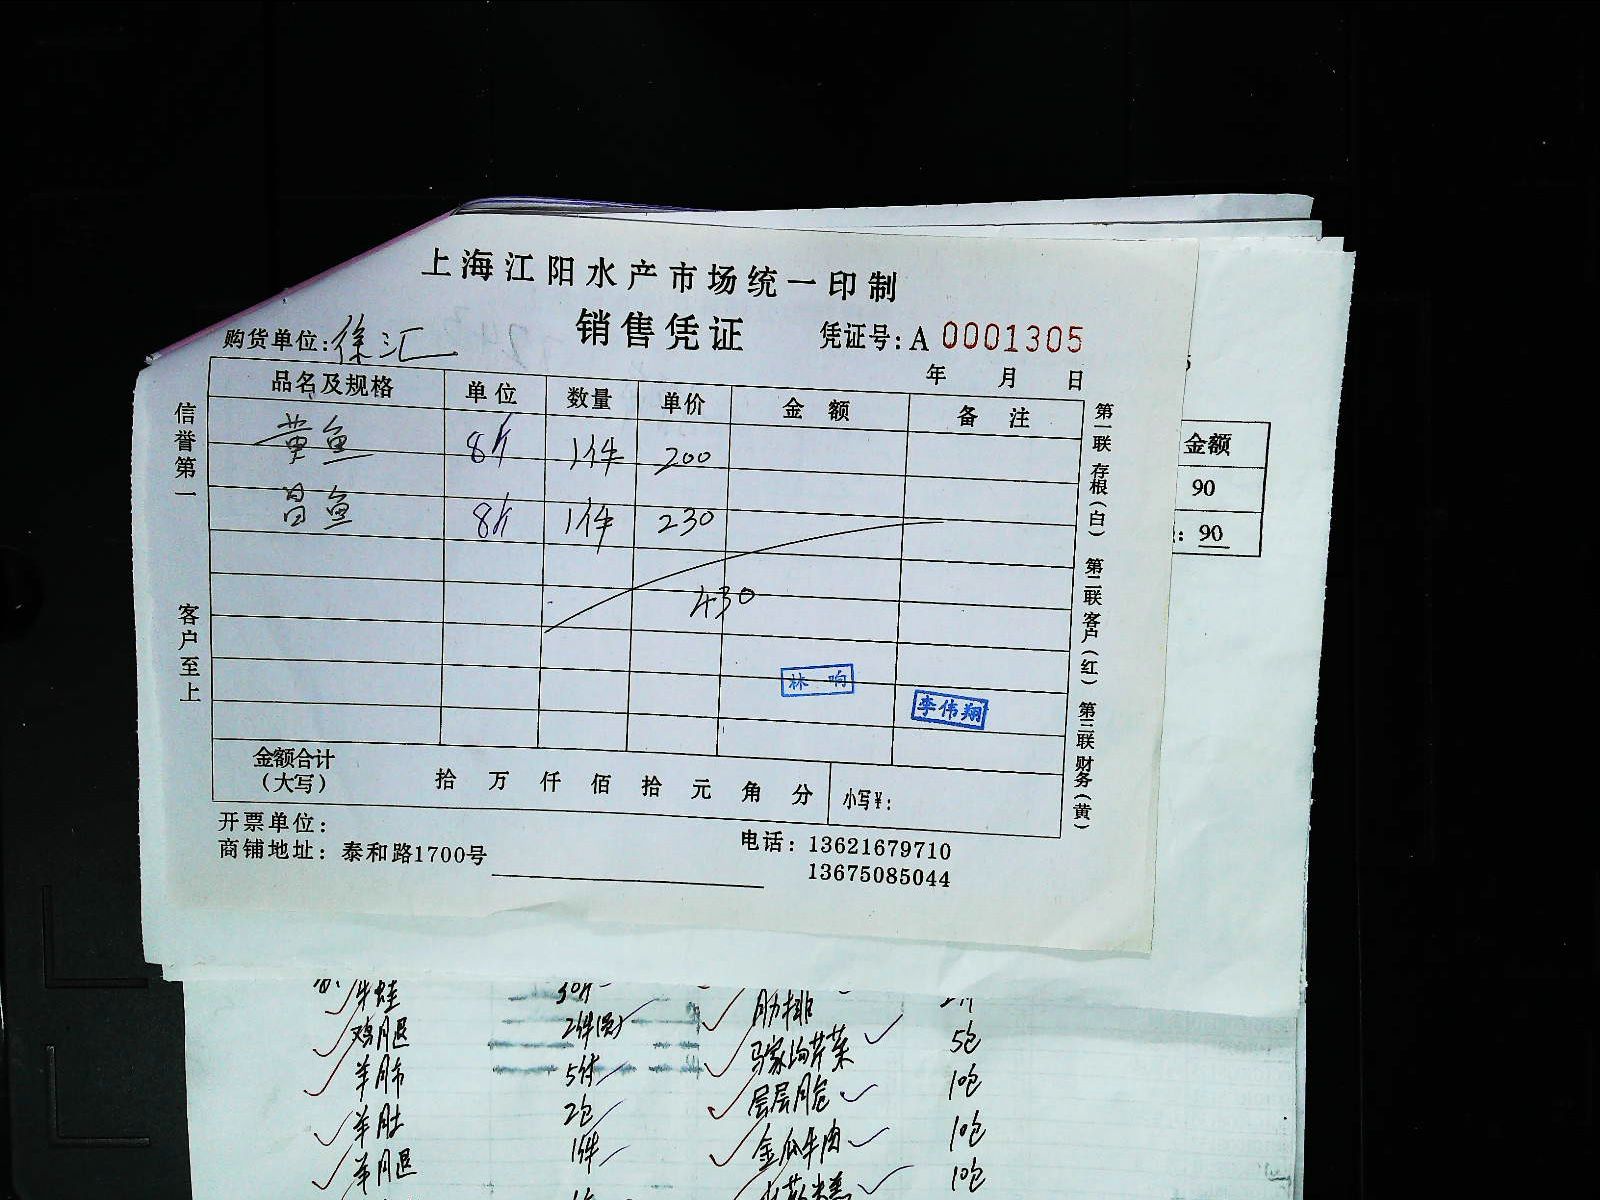 上海江阳水产市场统一印制
销售凭证
购货单位:徐汇
凭证号:A 0001305
年 月 日
品名及规格 单位 数量 单价 金额 备注
黄鱼 8斤 1件 200
昌鱼 8斤 1件 230
430
林响
李伟翔
金额合计(大写) 拾 万 仟 佰 拾 元 角 分 小写¥:
开票单位:
商铺地址:泰和路1700号
电话:13621679710
13675085044
信誉第一 客户至上
第一联存根(白) 第二联客户(红) 第三联财务(黄)
金额
90
90
牛蛙 30斤 肋排
鸡腿 2件 马家均芹菜 5包
羊肺 5件 层层脆 10包
羊肚 2包 金瓜牛肉 10包
羊腿 1件 10包